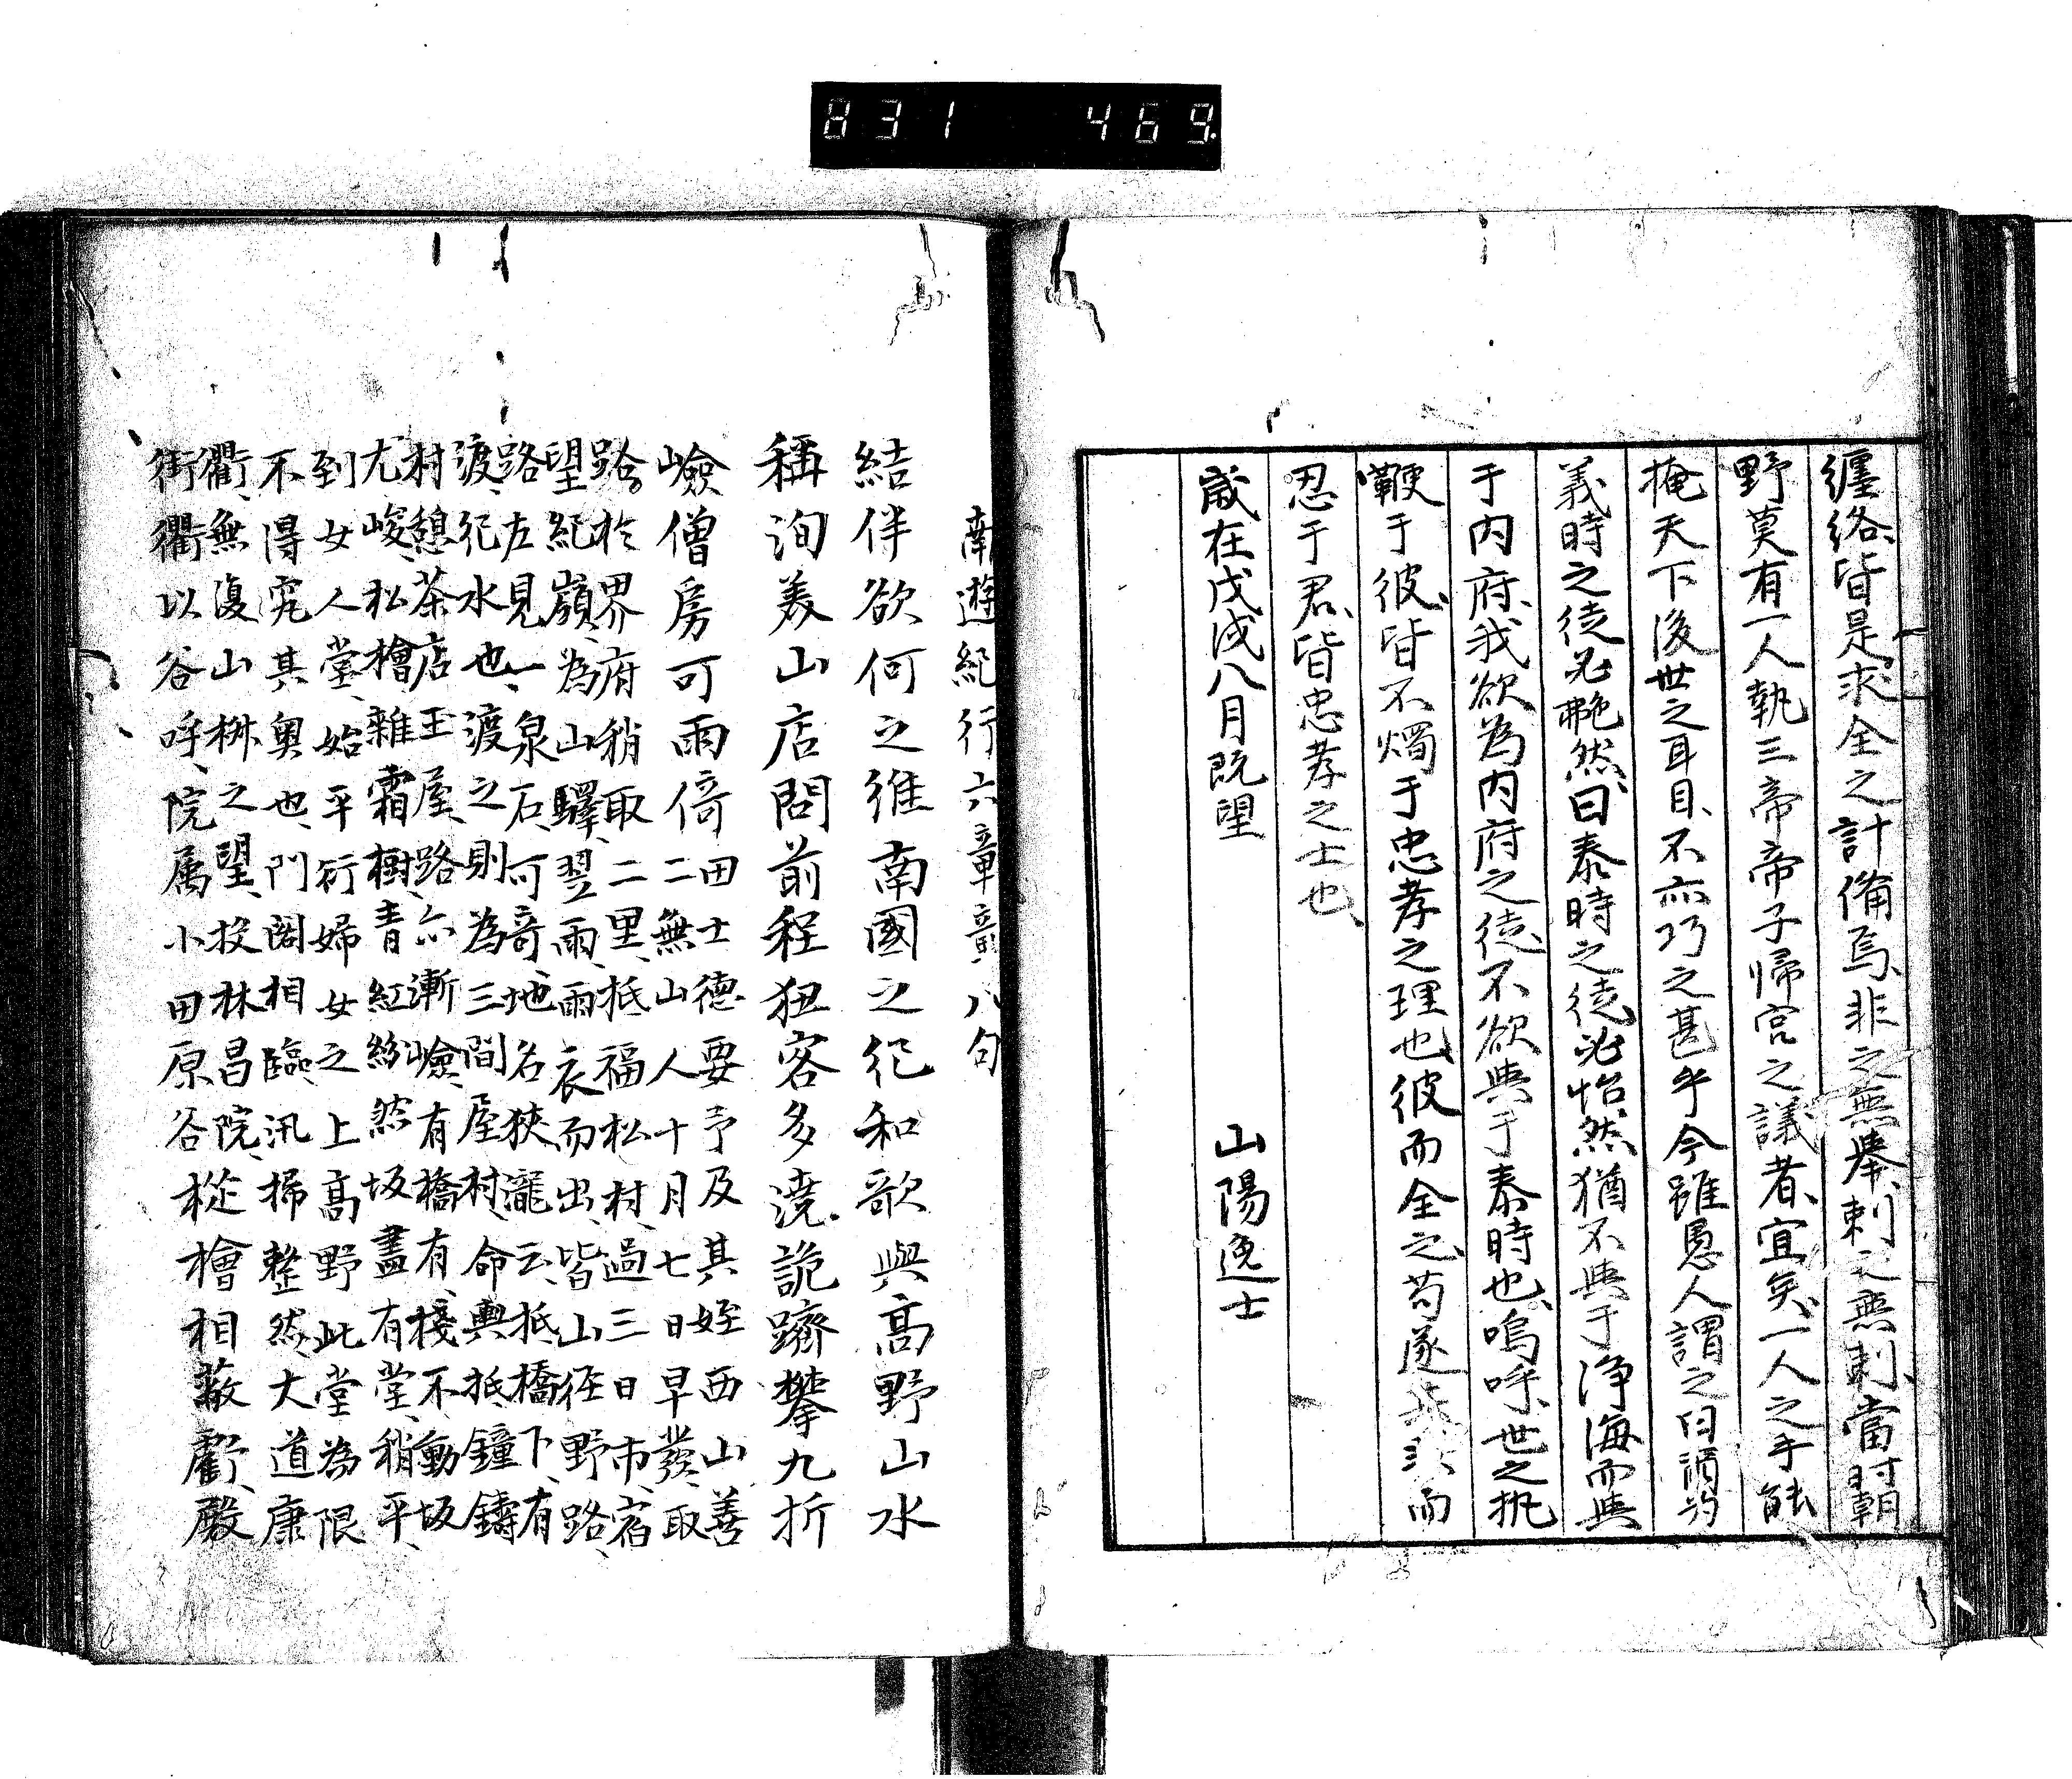 831 469
纏絡、皆是求全之計備焉、非之無舉、刺之無刺、當時朝
野莫有一人執三帝帝子帰宮之議者、宜矣、一人之手能
掩天下後世之耳目、不亦巧之甚乎、今雖愚人謂之曰
義時之徒必艴然、曰泰時之徒必怡然、猶不與于浄海而與
于内府、我欲為内府之徒、不欲與于泰時也、嗚呼、世之執
鞭于彼、皆不燭于忠孝之理也、彼而全之、苟遂 而
忍于君、皆忠孝之士也、
歳在戊戌八月既望 山陽逸士
南遊紀行六章章八句
結伴欲何之維南國之紀和歌與高野山水
稱洵美山店問前程狃客多澆詭躋攀九折
嶮僧房可雨倚二 田士德要予及其姪西山善
無山人十月七日早發取
路於界府稍取二里、抵福松村、過三日市、宿
望紀嶺、為山驛、翌雨、雨衣而出、皆山徑野路、
路左見一泉石、可奇、地名狹瀧云、抵橋下、有
渡、紀水也、渡之則為三間屋村、命輿抵鐘鑄
村、憩茶店、王屋、路亦漸嶮、有橋有棧、不動坂
尤峻、松檜雜霜樹、青紅紛然、坂盡有堂、稍平、
到女人堂、始平衍、婦女之上高野此堂為限
不得究其奧也、門閣相臨、汛掃整然、大道康
衢、無復山桝之望、投林昌院、
街衢以谷呼、院属小田原谷、樅檜相蔽虧、嚴